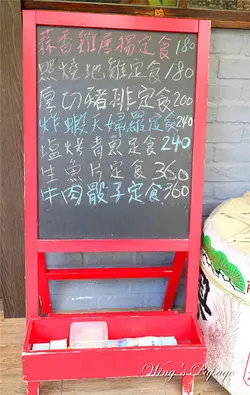 蒜香雞唐揚定食180
照燒地雞定食180
厚切豬排定食200
炸蝦天婦羅定食240
塩烤青魚定食240
生魚片定食360
牛肉骰子定食360
Wing's Papago